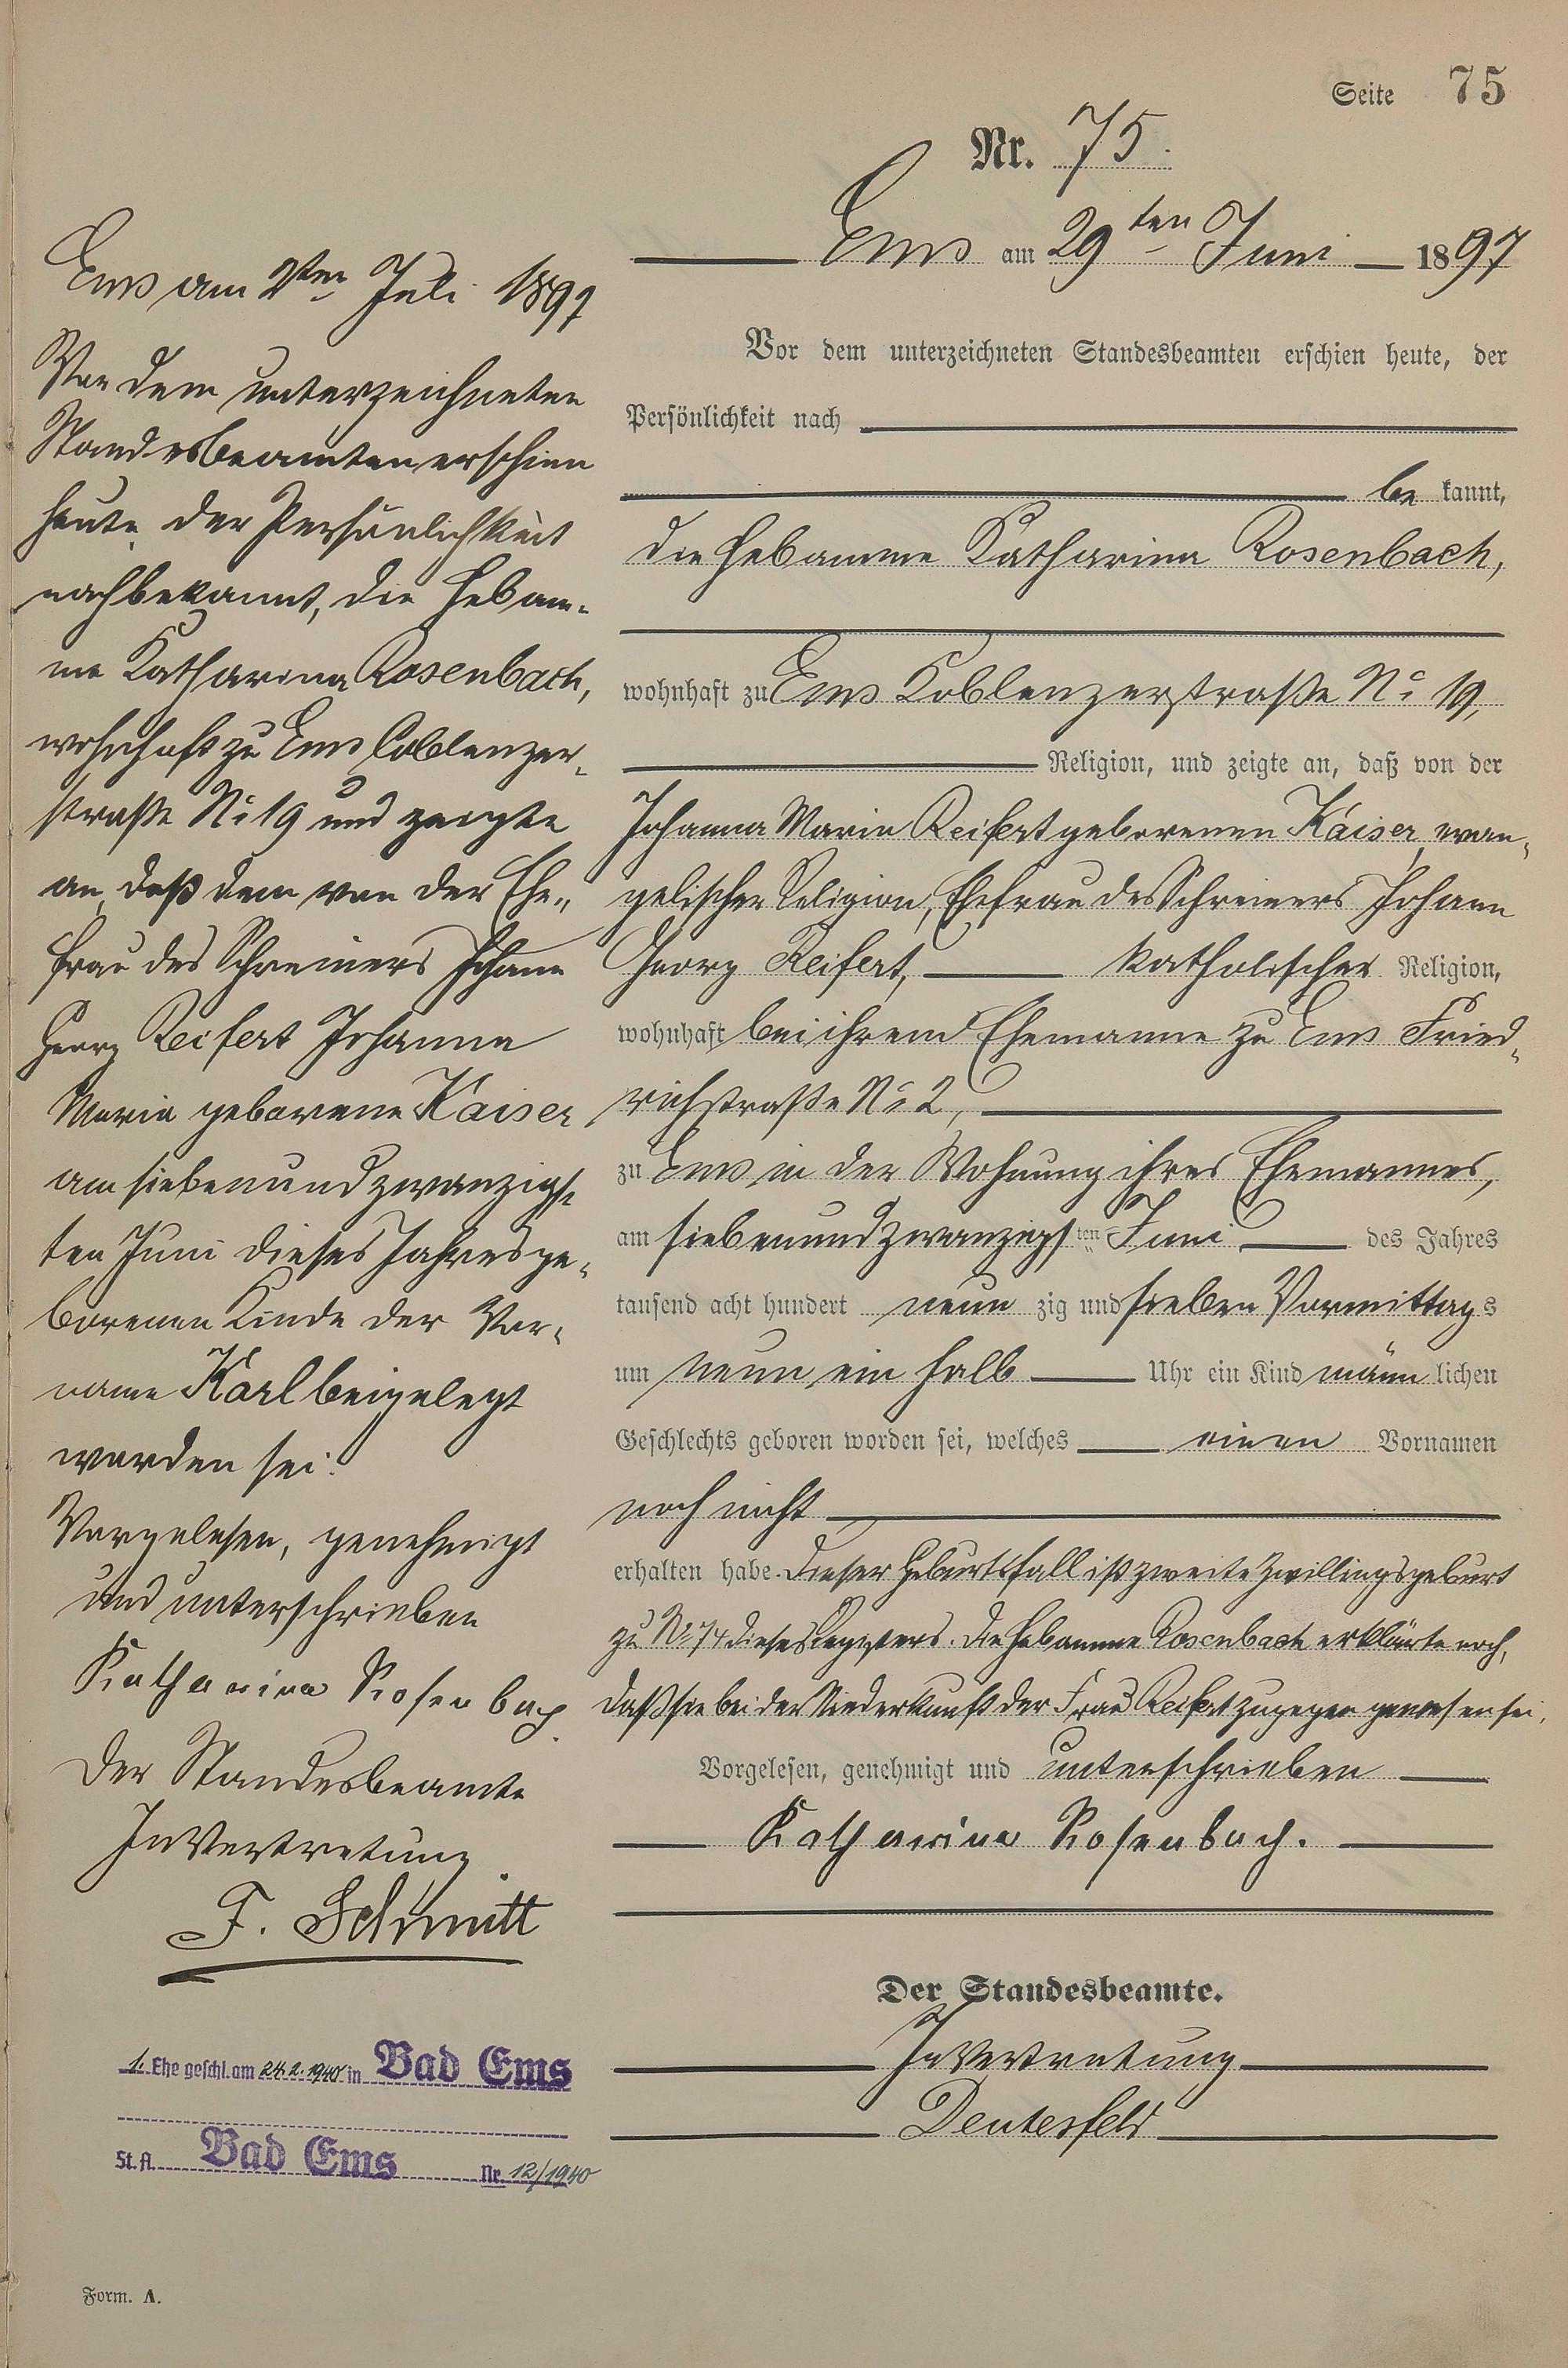 Seite 75
Nr. 75.
Ems am 29ten Juni 1897
Vor dem unterzeichneten Standesbeamten erschien heute, der
Persönlichkeit nach
be kannt,
die Hebamme Katharina Rosenbach,
wohnhaft zu Ems Coblenzerstraße No 19,
Religion, und zeigte an, daß von der
Johanna Maria Reifert geborenen Kaiser, evan-
gelischer Religion, Ehefrau des Schreiners Johann
Georg Reifert, katholischer Religion,
wohnhaft bei ihrem Ehemanne zu Ems Fried-
richstraße No 2,
zu Ems in der Wohnung ihres Ehemannes,
am siebenundzwanzigsten Juni des Jahres
tausend acht hundert neun zig und sieben Vormittags
um neun ein halb Uhr ein Kind männ lichen
Geschlechts geboren worden sei, welches einen Vornamen
noch nicht
erhalten habe. Dieser Geburtsfall ist zweite Zwillingsgeburt
zu No 74 dieses Registers. Die Hebamme Rosenbach erklärte noch,
daß sie bei der Niederkunft der Frau Reifert zugegen gewesen sei.
Vorgelesen, genehmigt und unterschrieben
Katharina Rosenbach.
Der Standesbeamte.
In Vertretung
Deutesfeld
Ems am 2ten Juli 1897
Vor dem unterzeichneten
Standesbeamten erschien
heute der Persönlichkeit
nach bekannt, die Hebam-
me Katharina Rosenbach,
wohnhaft zu Ems Coblenzer-
straße No 19 und zeigte
an, daß dem von der Ehe-
frau des Schreiners Johann
Georg Reifert Johanna
Maria geborene Kaiser
am siebenundzwanzigs-
ten Juni dieses Jahres ge-
borenen Kinde der Vor-
name Karl beigelegt
worden sei.
Vorgelesen, genehmigt
und unterschrieben
Katharina Rosenbach.
Der Standesbeamte
In Vertretung
F. Schmitt
1. Ehe geschl. am 24.2.1940 in Bad Ems
St. A. Bad Ems Nr. 12/1940
Form. A.